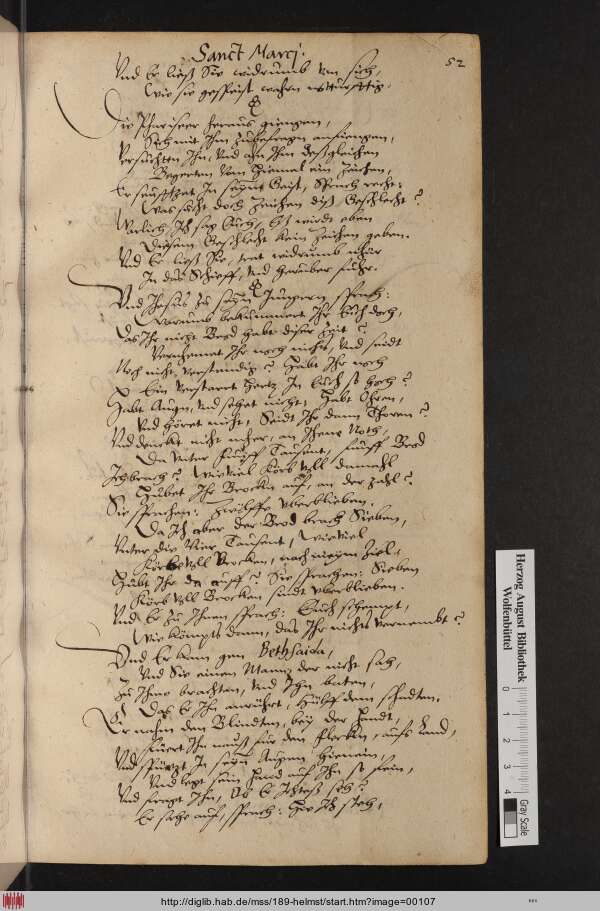 Sanct Marci.
52
Vnd Er ließ Sie widrumb von sich,
Wie sie gespeist warn
Die Phariseer heraus giengen,
Sich mit Ihm zubefragen anfiengen,
Versuchten Ihn, Vnd an Ihm deßgleichen
Begerten Von Himel ein Zeichen,
Er seufftzet In seynem Geist, Sprach recht:
Was sucht doch Zeichen diß Geschlecht?
Warlich, Ich sag Euch, Es wirdt eben
Diesem Geschlecht kein Zeichen geben.
Vnd Er ließ Sie, trat widrumb
In das Schieff, Vnd herüber fuhr.
Vnd Jhesus zu seyn Jungern sprach:
Warumb bekümmert Ihr Euch doch,
Das Ihr nicht Brod habt diser Zeit?
Vernehmet Ihr noch nichts, Vnd seidt
Noch nicht verstendig? Habt Ihr noch
Ein verstarrt Hertz In Euch so hoch?
Habt Augn, Vnd sehet nicht, Habt Ohren,
Vnd höret nicht, Seidt Ihr dann Thoren?
Vnd denckt nicht mher, an Ihene Noth,
Da Vnter Fünff Tausent, fünff Brod
Ich brach? Wieviel Körb Voll dennehl
Hubet Ihr Brockn auf, an der Zahl?
Sie sprachen: zwölffe vberblieben.
Da Ich aber der Brod brach Sieben,
Vnter die Vier Tausent, Wieviel
Körbe voll Brocken, nach meym Ziel,
Hubt Ihr da auff? Sie sprachen: Sieben
Körb Voll Brocken sindt vberblieben.
Vnd Er zu Ihnen sprach: Euch schempt,
Wie kömpts denn, das Ihr nichts vernembt?
Vnd Er kam gen Bethsaida,
Vnd Sie einen Mann, der nicht sah,
Zu Ihme brachten, Vnd Ihn baten,
Das Er Ihn anrührt, hülff dem schadten.
Er nahm den Blindten, bey der Handt,
Fürt Ihn nauß für den Flecken, aufs Land,
Vnd Spürtzt In seyn Augen hienein,
Vnd legt sein Hend auf Ihn so fein,
Vnd fragt Ihn, Ob Er Ichtes seh?
Er sahe auf, sprach: Hie Ich steh,
Herzog August Bibliothek
Wolfenbüttel
0 1 2 3 4
Gray Scale
http://diglib.hab.de/mss/189-helmst/start.htm?image=00107